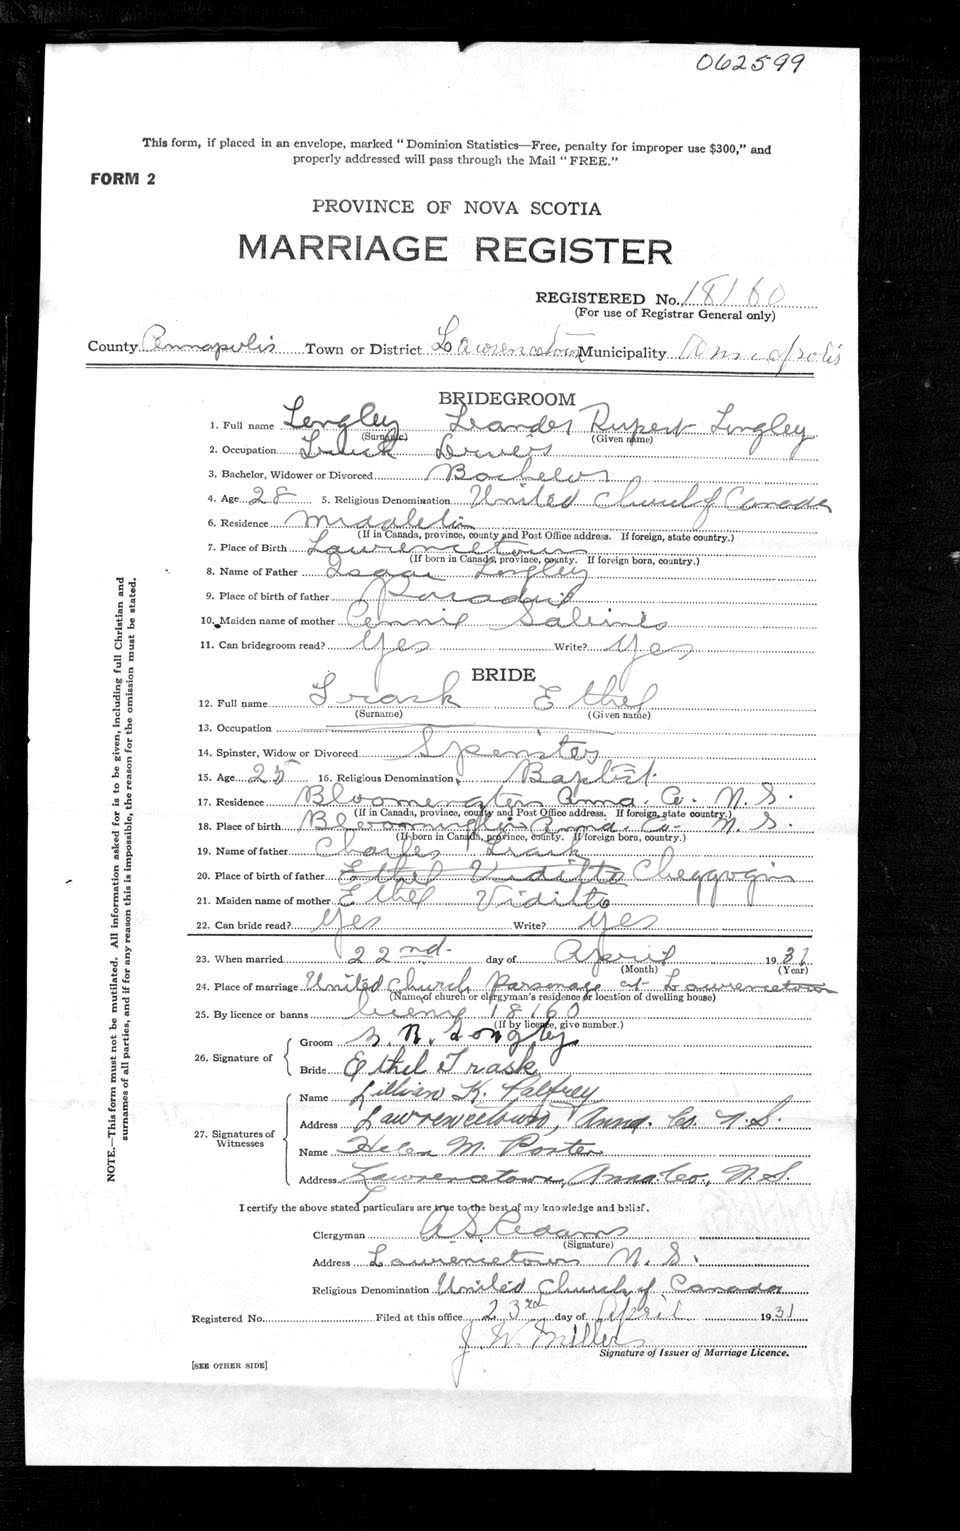 062599
This form, if placed in an envelope, marked "Dominion Statistics—Free, penalty for improper use $300," and
properly addressed will pass through the Mail "FREE."
FORM 2
PROVINCE OF NOVA SCOTIA
MARRIAGE REGISTER
REGISTERED No. 18160
(For use of Registrar General only)
County Annapolis Town or District Lawrencetown Municipality Annapolis
BRIDEGROOM
1. Full name Longley Leander Rupert Longley
(Surname) (Given name)
2. Occupation Truck Driver
3. Bachelor, Widower or Divorced Bachelor
4. Age 28 5. Religious Denomination United Church of Canada
6. Residence Middleton
(If in Canada, province, county and Post Office address. If foreign, state country.)
7. Place of Birth Lawrencetown
(If born in Canada, province, county. If foreign born, country.)
8. Name of Father Isaac Longley
9. Place of birth of father Paradise
10. Maiden name of mother
11. Can bridegroom read? Yes Write? Yes
BRIDE
12. Full name Trask Ethel
(Surname) (Given name)
13. Occupation
14. Spinster, Widow or Divorced Spenster
15. Age 25 16. Religious Denomination Baptist
17. Residence Bloomington Anna. Co. N.S.
(If in Canada, province, county and Post Office address. If foreign, state country.)
18. Place of birth Bloomington Anna. Co. N.S.
(If born in Canada, province, county. If foreign born, country.)
19. Name of father Charles Trask
20. Place of birth of father Ethel Viditto Cheggogin
21. Maiden name of mother Ethel Viditto
22. Can bride read? Yes Write? Yes
23. When married 22nd day of April 1931
(Month) (Year)
24. Place of marriage United Church Parsonage at Lawrencetown
(Name of church or clergyman's residence or location of dwelling house)
25. By licence or banns 18160
(If by licence, give number.)
26. Signature of
Groom L. R. Longley
Bride Ethel Trask
27. Signatures of Witnesses
Name Lillian K. Palfrey
Address Lawrencetown, Anna. Co. N.S.
Name Helen M. Porter
Address Lawrencetown, Anna. Co., N.S.
I certify the above stated particulars are true to the best of my knowledge and belief.
Clergyman
(Signature)
Address Lawrencetown N.S.
Religious Denomination United Church of Canada
Registered No. Filed at this office 23rd day of April 1931
J W Miller
Signature of Issuer of Marriage Licence.
[SEE OTHER SIDE]
NOTE.—This form must not be mutilated. All information asked for is to be given, including full Christian and
surnames of all parties, and if for any reason this is impossible, the reason for the omission must be stated.